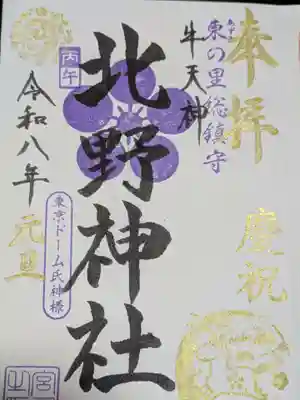 奉拝
慶祝
東の里総鎮守
牛天神
北野神社
丙午
令和八年
元旦
東京ドーム氏神様